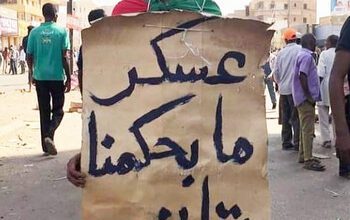 عسكر
ما بحكمنا